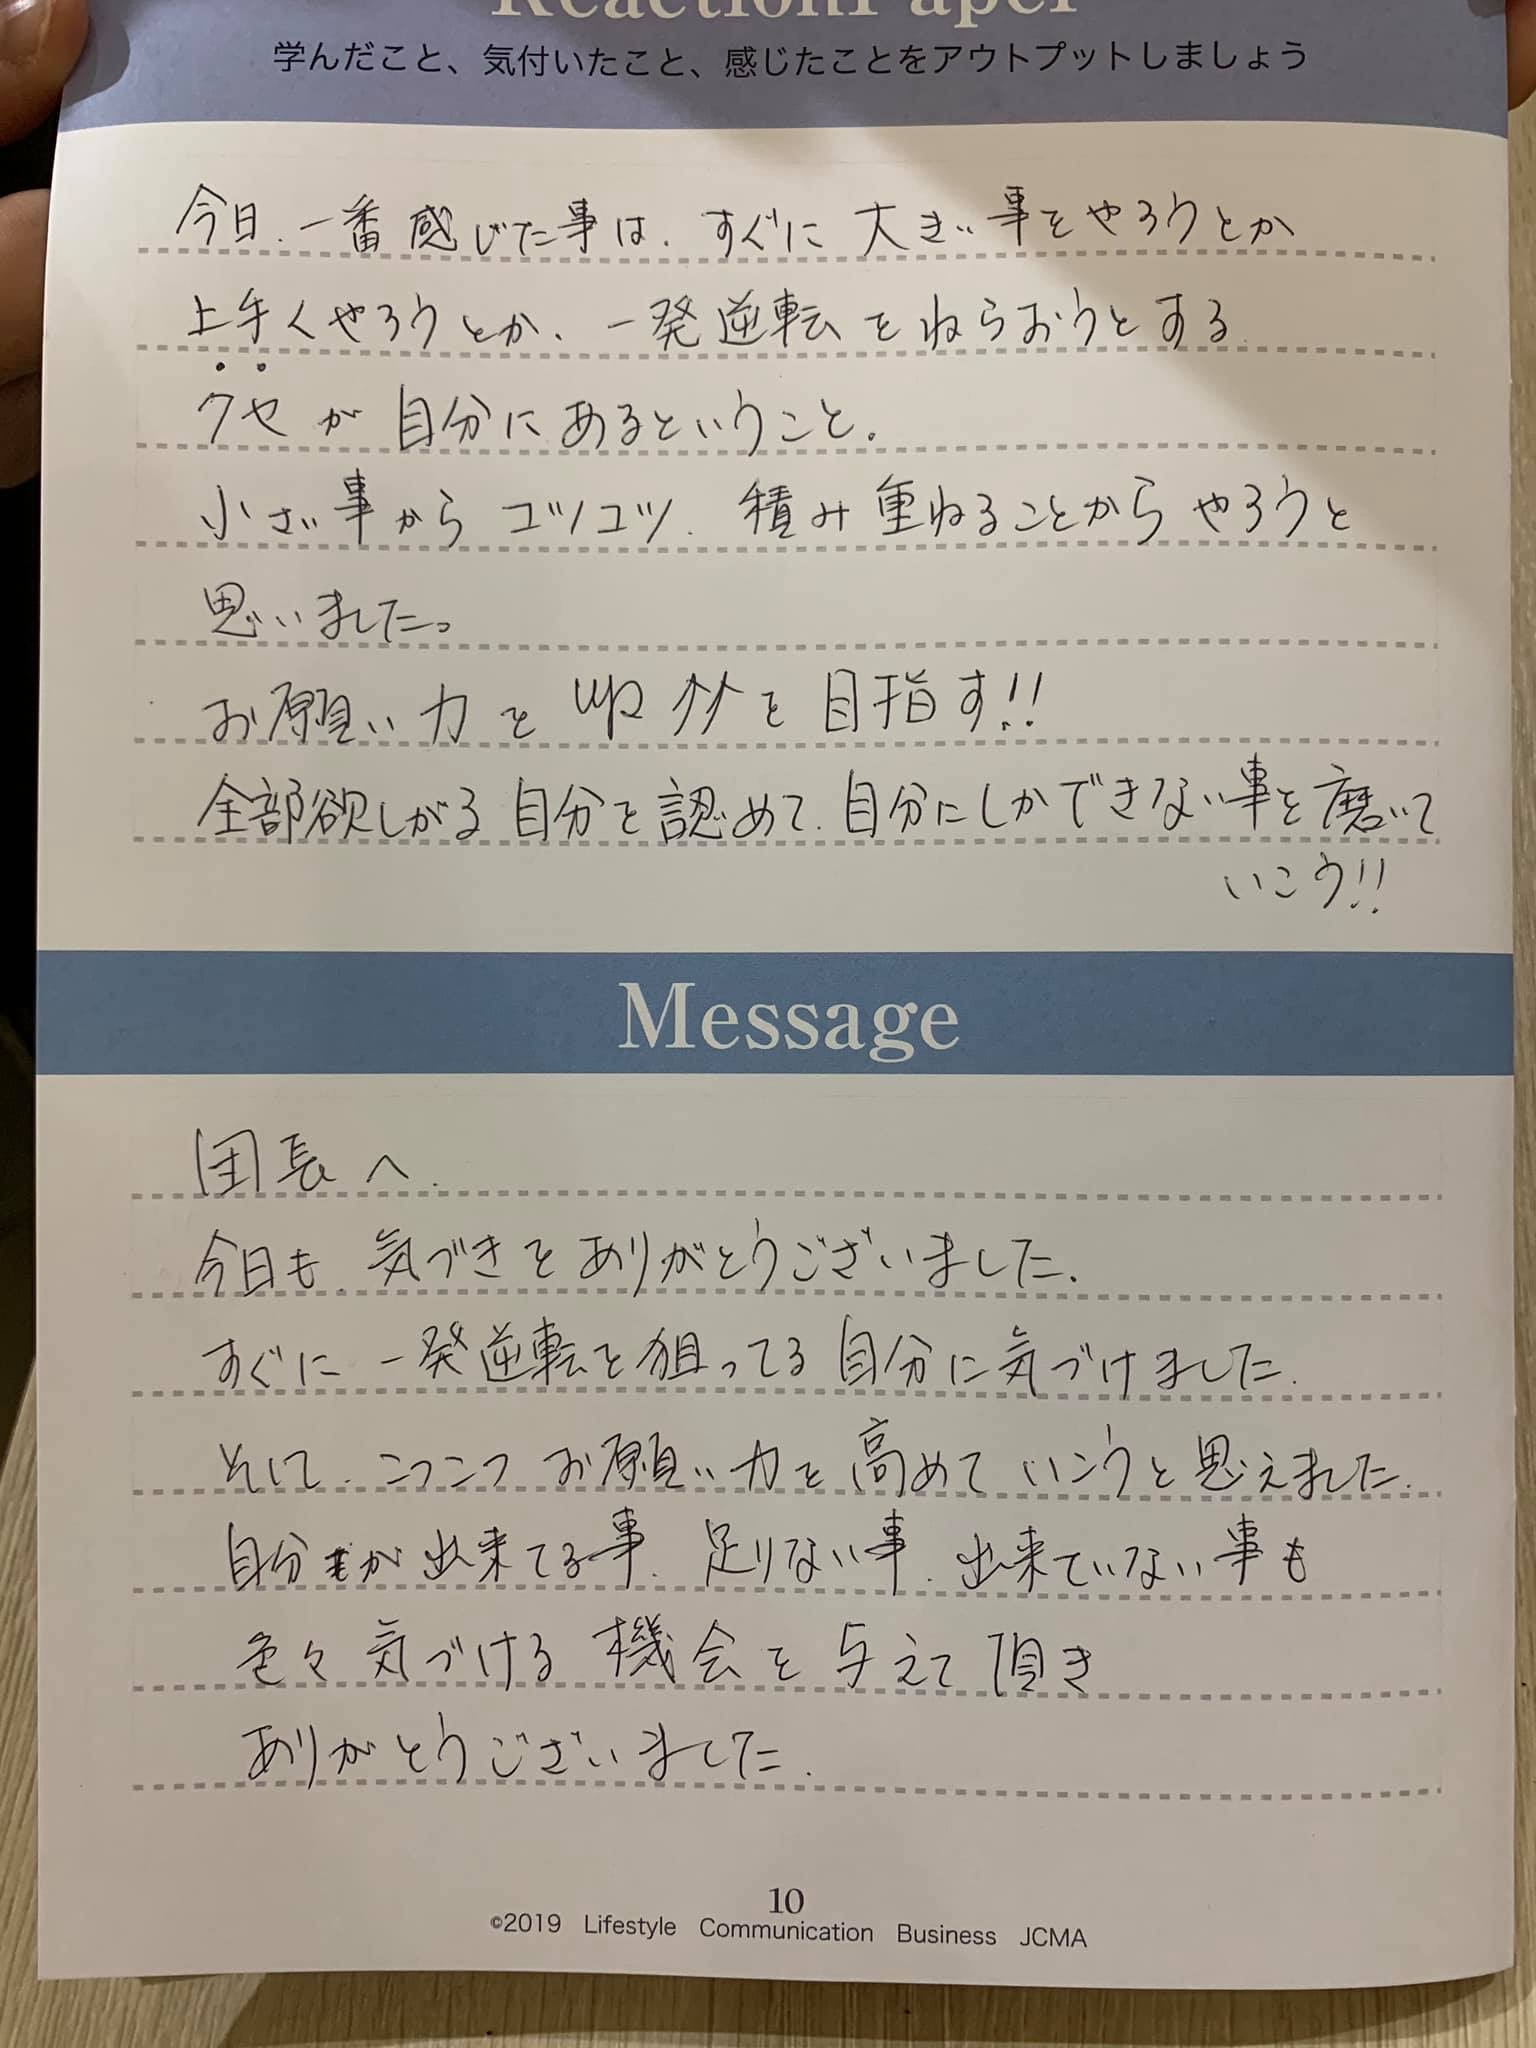 ReactionPaper
学んだこと、気付いたこと、感じたことをアウトプットしましょう
今日、一番感じた事は、すぐに大きい事をやろうとか
上手くやろうとか、一発逆転をねらおうとする
クセが自分にあるということ。
小さい事からコツコツ、積み重ねることからやろうと
思いました。
お願い力を up ↗↗を目指す!!
全部欲しがる自分を認めて、自分にしかできない事を磨いて
いこう!!
Message
団長へ、
今日も、気づきをありがとうございました。
すぐに一発逆転を狙ってる自分に気づけました。
そして、こつこつお願い力を高めていこうと思えました。
自分が出来てる事、足りない事、出来ていない事も
色々気づける機会を与えて頂き
ありがとうございました。
10
©2019 Lifestyle Communication Business JCMA